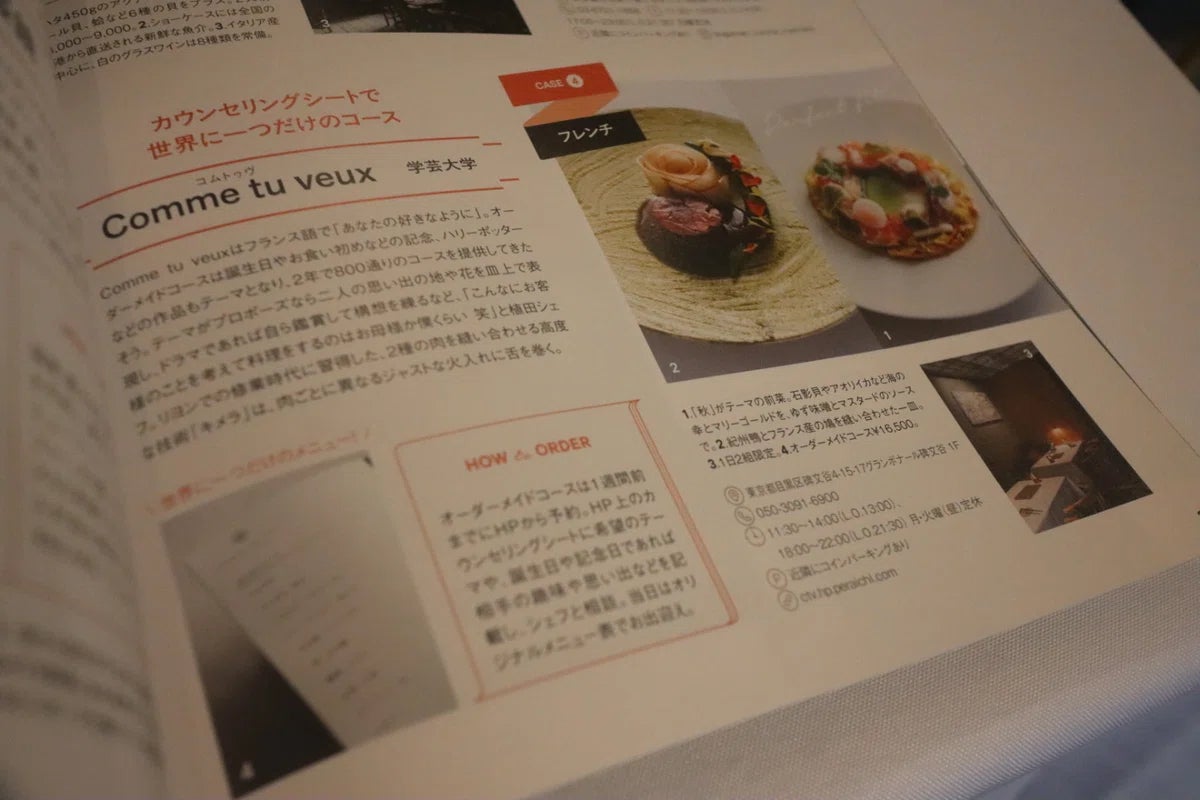 タ450gのアクア
ール貝、蛤など6種の貝をプラス。
,000〜9,000。2.ショーケースには全国の
港から直送される新鮮な魚介。3.イタリア産
中心に、白のグラスワインは8種類を常備。
3
17:00〜23:00
近隣にコインパーキングあり
カウンセリングシートで
世界に一つだけのコース
コムトゥヴ
Comme tu veux 学芸大学
Comme tu veuxはフランス語で「あなたの好きなように」。オー
ダーメイドコースは誕生日やお食い初めなどの記念、ハリーポッター
などの作品もテーマとなり、2年で800通りのコースを提供してきた
そう。テーマがプロポーズなら二人の思い出の地や花を皿上で表
現し、ドラマであれば自ら鑑賞して構想を練るなど、「こんなにお客
様のことを考えて料理をするのはお母様か僕くらい 笑」と植田シェ
フ。リヨンでの修業時代に習得した、2種の肉を縫い合わせる高度
な技術「キメラ」は、肉ごとに異なるジャストな火入れに舌を巻く。
CASE 4
フレンチ
2
1
3
世界に一つだけのメニュー!
4
HOW to ORDER
オーダーメイドコースは1週間前
までにHPから予約。HP上のカ
ウンセリングシートに希望のテー
マや、誕生日や記念日であれば
相手の趣味や思い出などを記
載し、シェフと相談。当日はオリ
ジナルメニュー表でお出迎え。
1.「秋」がテーマの前菜。石影貝やアオリイカなど海の
幸とマリーゴールドを、ゆず味噌とマスタードのソース
で。2.紀州鴨とフランス産の鳩を縫い合わせた一皿。
3.1日2組限定。4.オーダーメイドコース¥16,500。
東京都目黒区碑文谷4-15-17グランボナール碑文谷 1F
050-3091-6900
11:30〜14:00(L.O.13:00)、
18:00〜22:00(L.O.21:30) 月・火曜(昼)定休
P 近隣にコインパーキングあり
ctv.hp.peraichi.com